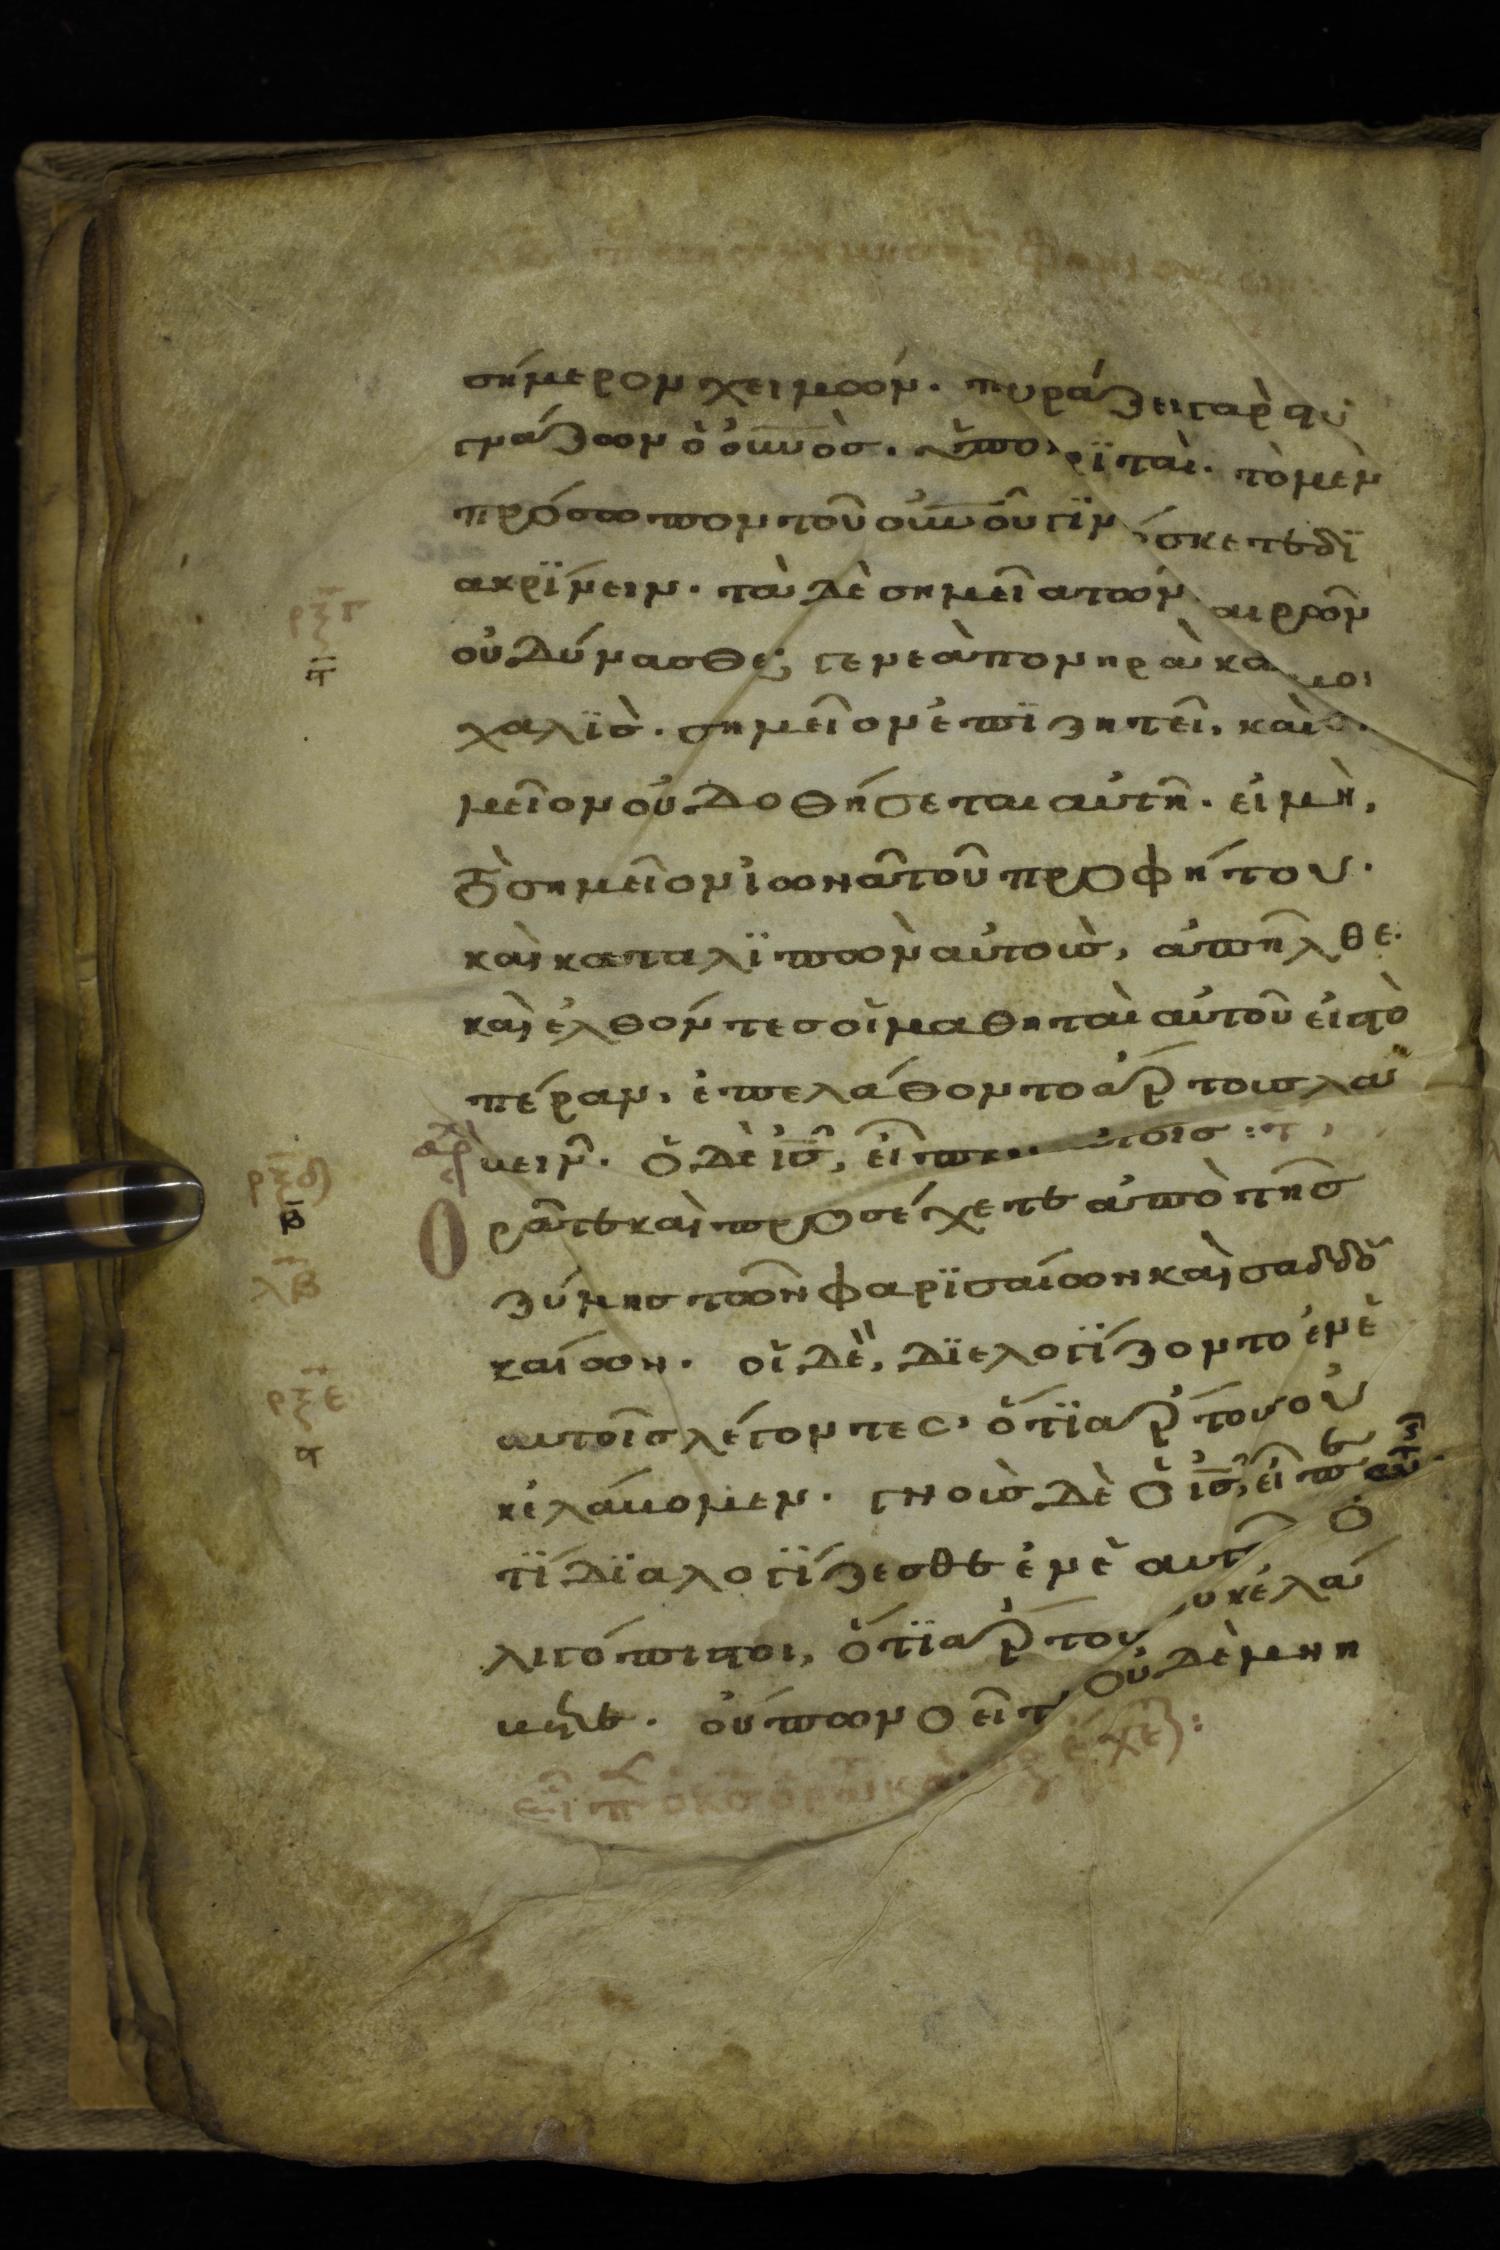 σήμερον χειμών. πυράζει γὰρ στυ
γνάζων ὁ οὐνὸσ. ὑποκριταὶ. τὸ μὲν
πρόσωπον τοῦ οὐνοῦ γιν σκετε δϊ
ακρϊνειν. τὰ δὲ σημεῖα τῶν αιρῶν
οὐ δύνασθε; γενεὰ πονηρὰ κα μοι
χαλϊσ. σημεῖον ἐπϊζητεῖ, καὶ σ
μεῖον οὐ δοθήσεται αὐτῆ. εἰ μὴ,
τὸ σημεῖον ϊωνᾶ τοῦ προφήτου.
καὶ καταλϊπὼν αὐτοὺσ, ἀπῆλθε.
καὶ ἐλθόντεσ οἱ μαθηταὶ αὐτοῦ εἰς τὸ
πέραν, ἐπελάθοντο ἄρτουσ λα
βειν. ὁ δὲ ις, εἶπεν αὐτοισ:
ρξδ
β
λβ
Ορᾶτε καὶ προσέχετε ἀπὸ τῆσ
ζύμησ τῶν φαρϊσαίων καὶ σαδδου
καίων. οἱ δὲ, δϊελογϊζοντο ἐν ἑ
αυτοῖσ λέγοντες, ὅτϊ ἄρτουσ οὐ
ρξε
α
κ ἐλάβομεν. γνοὺσ δὲ ὁ ις, εἶπεν αὐτοῖσ.
τϊ δϊαλογϊζεσθε ἐν ἑαυτ ὀ
λιγόπιστοι, ὅτϊ ἄρτουσ υκ ἐλά
βετε. οὔπω νοεῖτ οὐδὲ μνη